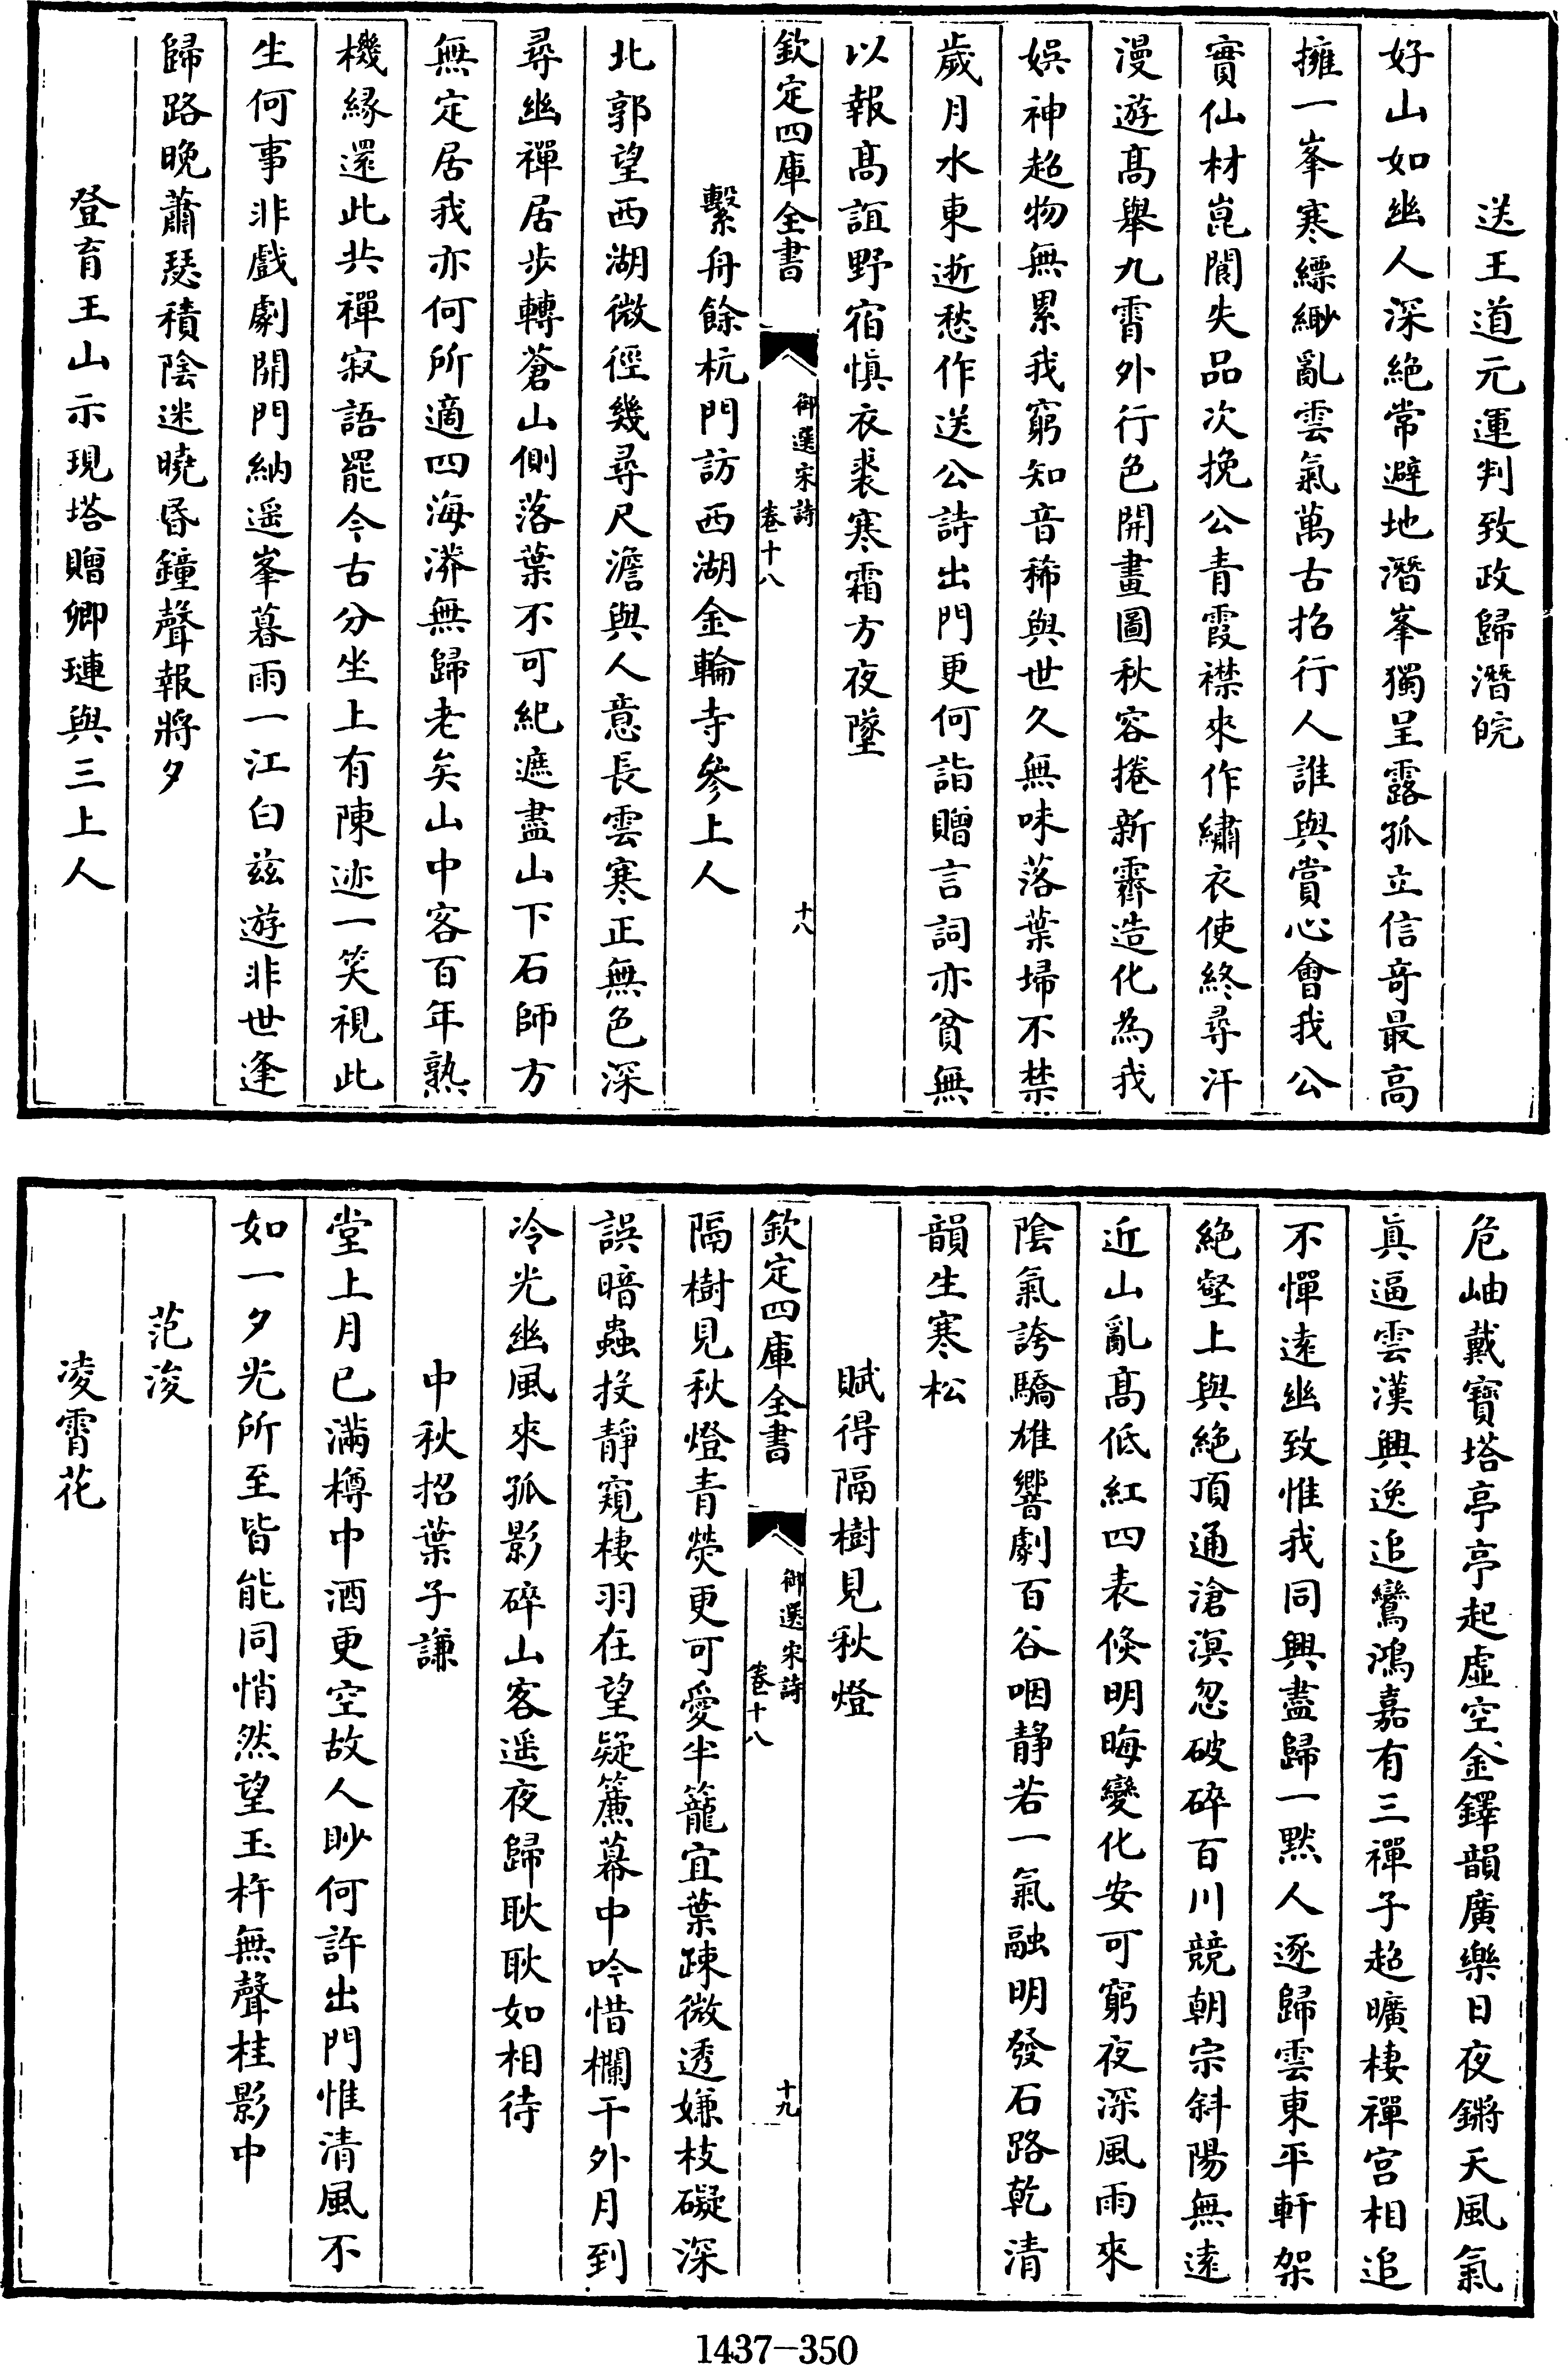 送王道元運判致政歸潛皖
好山如幽人深絶常避地潛峯獨呈露孤立信奇最高
擁一峯寒縹緲亂雲氣萬古招行人誰與賞心會我公
實仙材崑閬失品次挽公青霞襟來作繡衣使終尋汗
漫遊髙舉九霄外行色開畫圖秋容捲新霽造化為我
娯神超物無累我窮知音稀與世久無味落葉掃不禁
歲月水東逝愁作送公詩出門更何詣贈言詞亦貧無
以報髙誼野宿慎衣裘寒霜方夜墜
欽定四庫全書
御選宋詩
卷十八
十八
繫舟餘杭門訪西湖金輪寺參上人
北郭望西湖微徑幾尋尺澹與人意長雲寒正無色深
尋幽禪居步轉蒼山側落葉不可紀遮盡山下石師方
無定居我亦何所適四海漭無歸老矣山中客百年熟
機緣還此共禪寂語罷今古分坐上有陳迹一笑視此
生何事非戲劇開門納遥峯暮雨一江白兹遊非世逢
歸路晚蕭瑟積陰迷曉昏鐘聲報將夕
登育王山示現塔贈卿璉與三上人
危岫戴寶塔亭亭起虛空金鐸韻廣樂日夜鏘天風氣
真逼雲漢興逸追鸞鴻嘉有三禪子超曠棲禪宫相追
不憚遠幽致惟我同興盡歸一黙人逐歸雲東平軒架
絶壑上與絶頂通滄溟忽破碎百川競朝宗斜陽無遠
近山亂髙低紅四表倏明晦變化安可窮夜深風雨來
陰氣誇驕雄響劇百谷咽靜若一氣融明發石路乾清
韻生寒松
賦得隔樹見秋燈
欽定四庫全書
御選宋詩
卷十八
十九
隔樹見秋燈青熒更可愛半籠宜葉疎微透嫌枝礙深
誤暗蟲投靜窺棲羽在望疑簾幕中吟惜欄干外月到
冷光幽風來孤影碎山客遥夜歸耿耿如相待
中秋招葉子謙
堂上月已滿樽中酒更空故人眇何許出門惟清風不
如一夕光所至皆能同悄然望玉杵無聲桂影中
范浚
凌霄花
1437-350